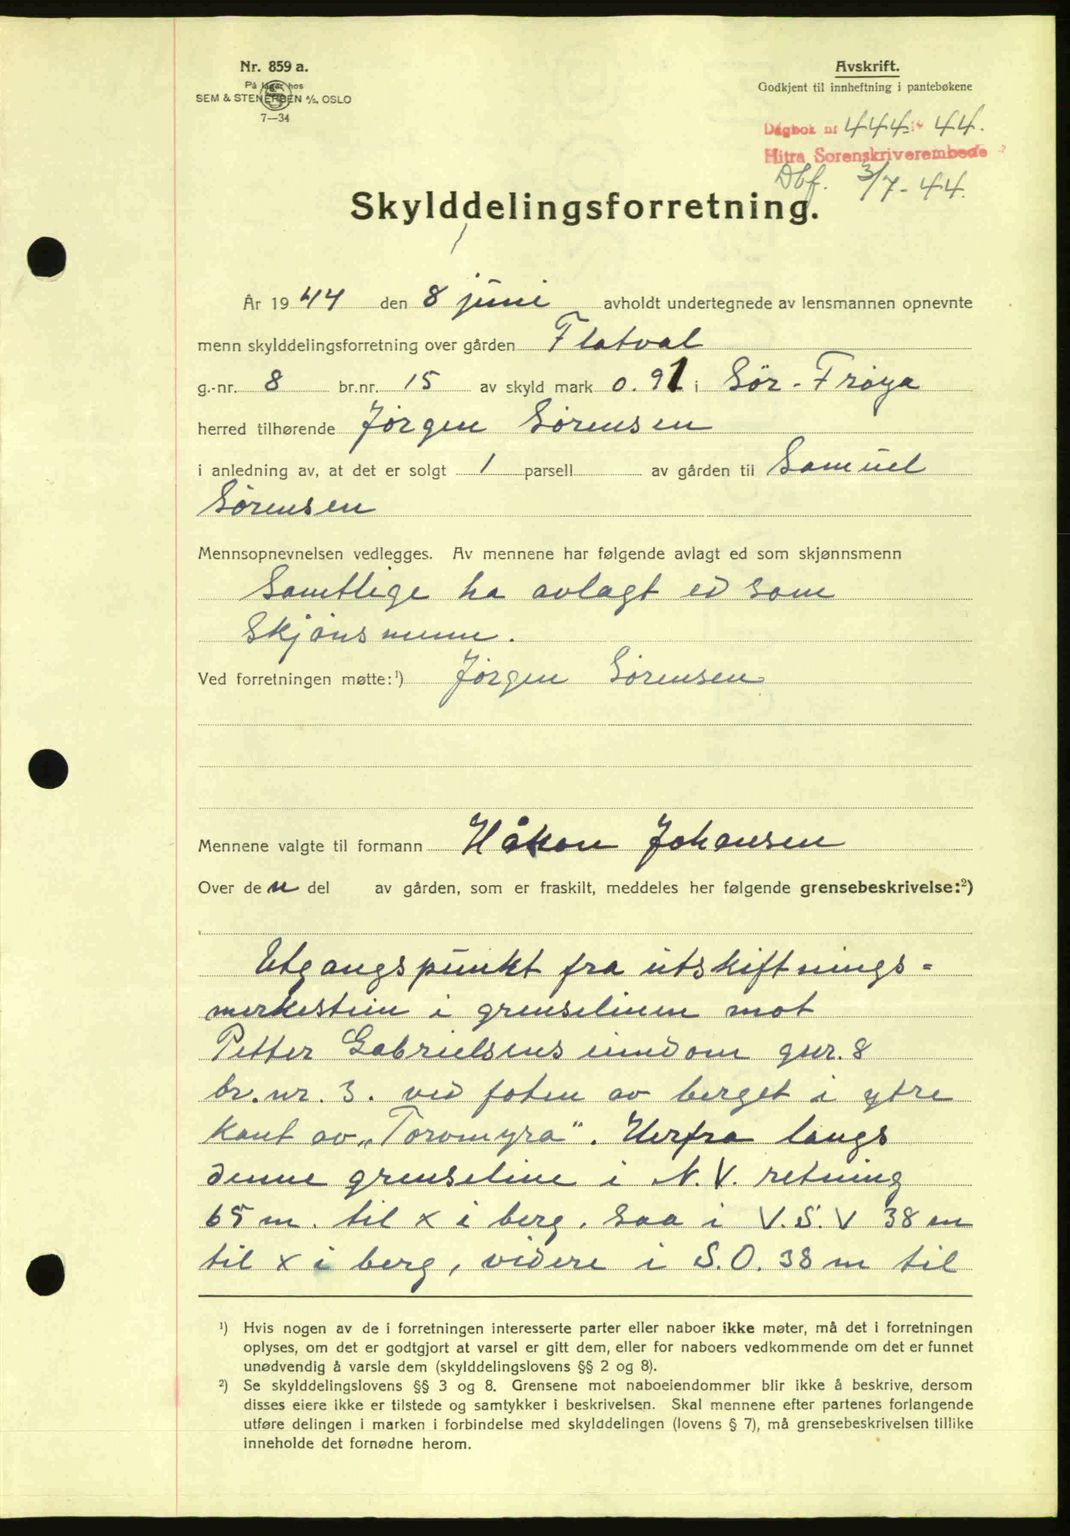 Nr. 859 a.
På lager hos
SEM & STENERSEN A/S, OSLO
7—34
Avskrift.
Godkjent til innheftning i pantebøkene
Dagbok nr 444 - 44.
Hitra Sorenskriverembede
Dbf. 3/7-44.
Skylddelingsforretning.
År 1944 den 8 juni avholdt undertegnede av lensmannen opnevnte
menn skylddelingsforretning over gården Flatval
g.-nr. 8 br.nr. 15 av skyld mark 0.91 i Sør-Frøya
herred tilhørende Jørgen Sørensen
i anledning av, at det er solgt 1 parsell av gården til Samuel
Sørensen
Mennsopnevnelsen vedlegges. Av mennene har følgende avlagt ed som skjønnsmenn
Samtlige ha avlagt ed som
Skjønsmenn.
Ved forretningen møtte:¹) Jørgen Sørensen
Mennene valgte til formann Håkon Johansen
Over den del av gården, som er fraskilt, meddeles her følgende grensebeskrivelse:²)
Utgangspunkt fra utskiftnings-
merkestein i grenselinen mot
Petter Gabrielsens eiendom gnr. 8
br. nr. 3. ved foten av berget i ytre
kant av „Torvmyra". Herfra langs
denne grenseline i N.V. retning
65 m. til x i berg, saa i V.S.V 38 m
til x i berg, videre i S.O. 38 m til
¹) Hvis nogen av de i forretningen interesserte parter eller naboer ikke møter, må det i forretningen
oplyses, om det er godtgjort at varsel er gitt dem, eller for naboers vedkommende om det er funnet
unødvendig å varsle dem (skylddelingslovens §§ 2 og 8).
²) Se skylddelingslovens §§ 3 og 8. Grensene mot naboeiendommer blir ikke å beskrive, dersom
disses eiere ikke er tilstede og samtykker i beskrivelsen. Skal mennene efter partenes forlangende
utføre delingen i marken i forbindelse med skylddelingen (lovens § 7), må grensebeskrivelsen tillike
inneholde det fornødne herom.